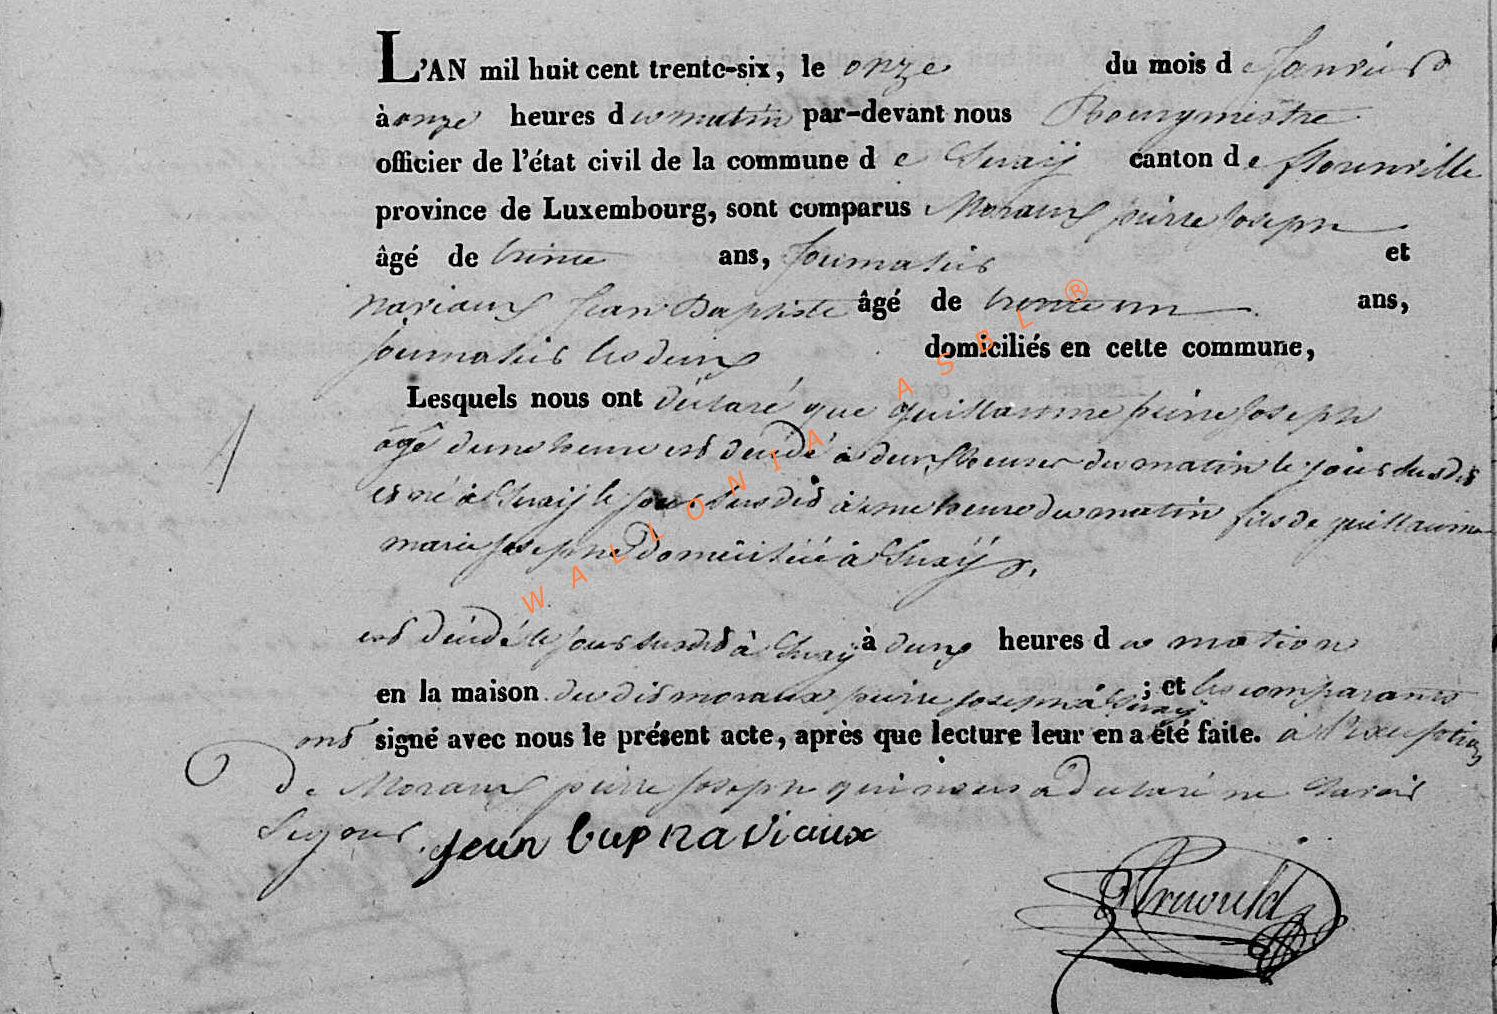 L'AN mil huit cent trente-six, le onze du mois de Janvier
à onze heures du matin par-devant nous Bourgmestre
officier de l'état civil de la commune de Suxÿ canton de florenville
province de Luxembourg, sont comparus Moraux pierre Joseph
âgé de trente ans, Journalier et
naviaux Jean Baptiste âgé de trente un ans,
Journalier les deux domiciliés en cette commune,
Lesquels nous ont déclaré que guillaume pierre Joseph
âgé dune heure est decédé à deux heures du matin le jour susdit
et né à Suxÿ le jour susdit à une heure du matin fils de guillaume
marie Josephe domiciliée à Suxÿ.
est décédé le jour susdit à Suxÿ à deux heures du matin
en la maison du dit moraux pierre Joseph à Suxÿ ; et les comparants
ont signé avec nous le présent acte, après que lecture leur en a été faite. à l'exception
de Moraux pierre Joseph qui nous a declaré ne Savoir
Signer. jean bap naviaux
WALLONIA ASBL ®